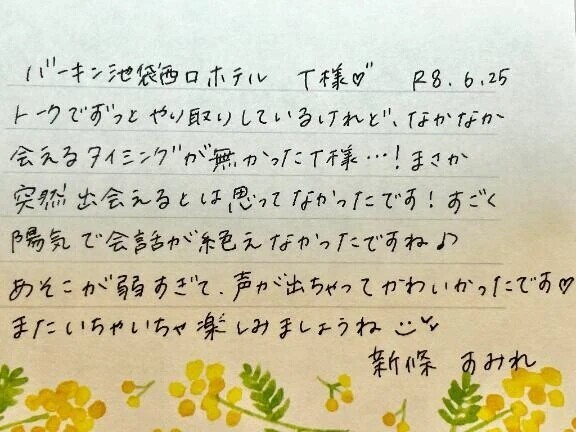 バーキン池袋西口ホテル T様♡ R8.6.25
トークでずっとやり取りしているけれど、なかなか
会えるタイミングが無かったT様…！まさか
突然出会えるとは思ってなかったです！すごく
陽気で会話が絶えなかったですね♪
あそこが弱すぎて、声が出ちゃってかわいかったです♡
またいちゃいちゃ楽しみましょうね
新條 すみれ